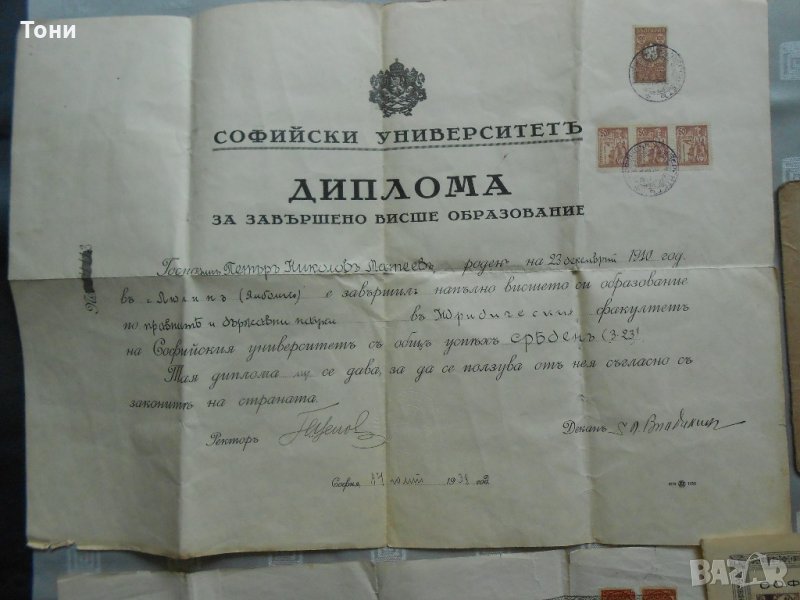 Тони
СОФИЙСКИ УНИВЕРСИТЕТЪ
ДИПЛОМА
ЗА ЗАВЪРШЕНО ВИСШЕ ОБРАЗОВАНИЕ
Господинъ Петъръ Николовъ Матеевъ, роденъ на 23 декемврий 1910 год.
въ с. Люлинъ (Ямболско) е завършилъ напълно висшето си образование
по правнитѣ и държавни науки въ Юридическия факултетъ
на Софийския университетъ съ общъ успѣхъ срѣденъ (3·23)
Тая диплома му се дава, за да се ползува отъ нея съгласно съ
законитѣ на страната.
Ректоръ
Деканъ
София юлий 193 год
BAZAR
СОФ